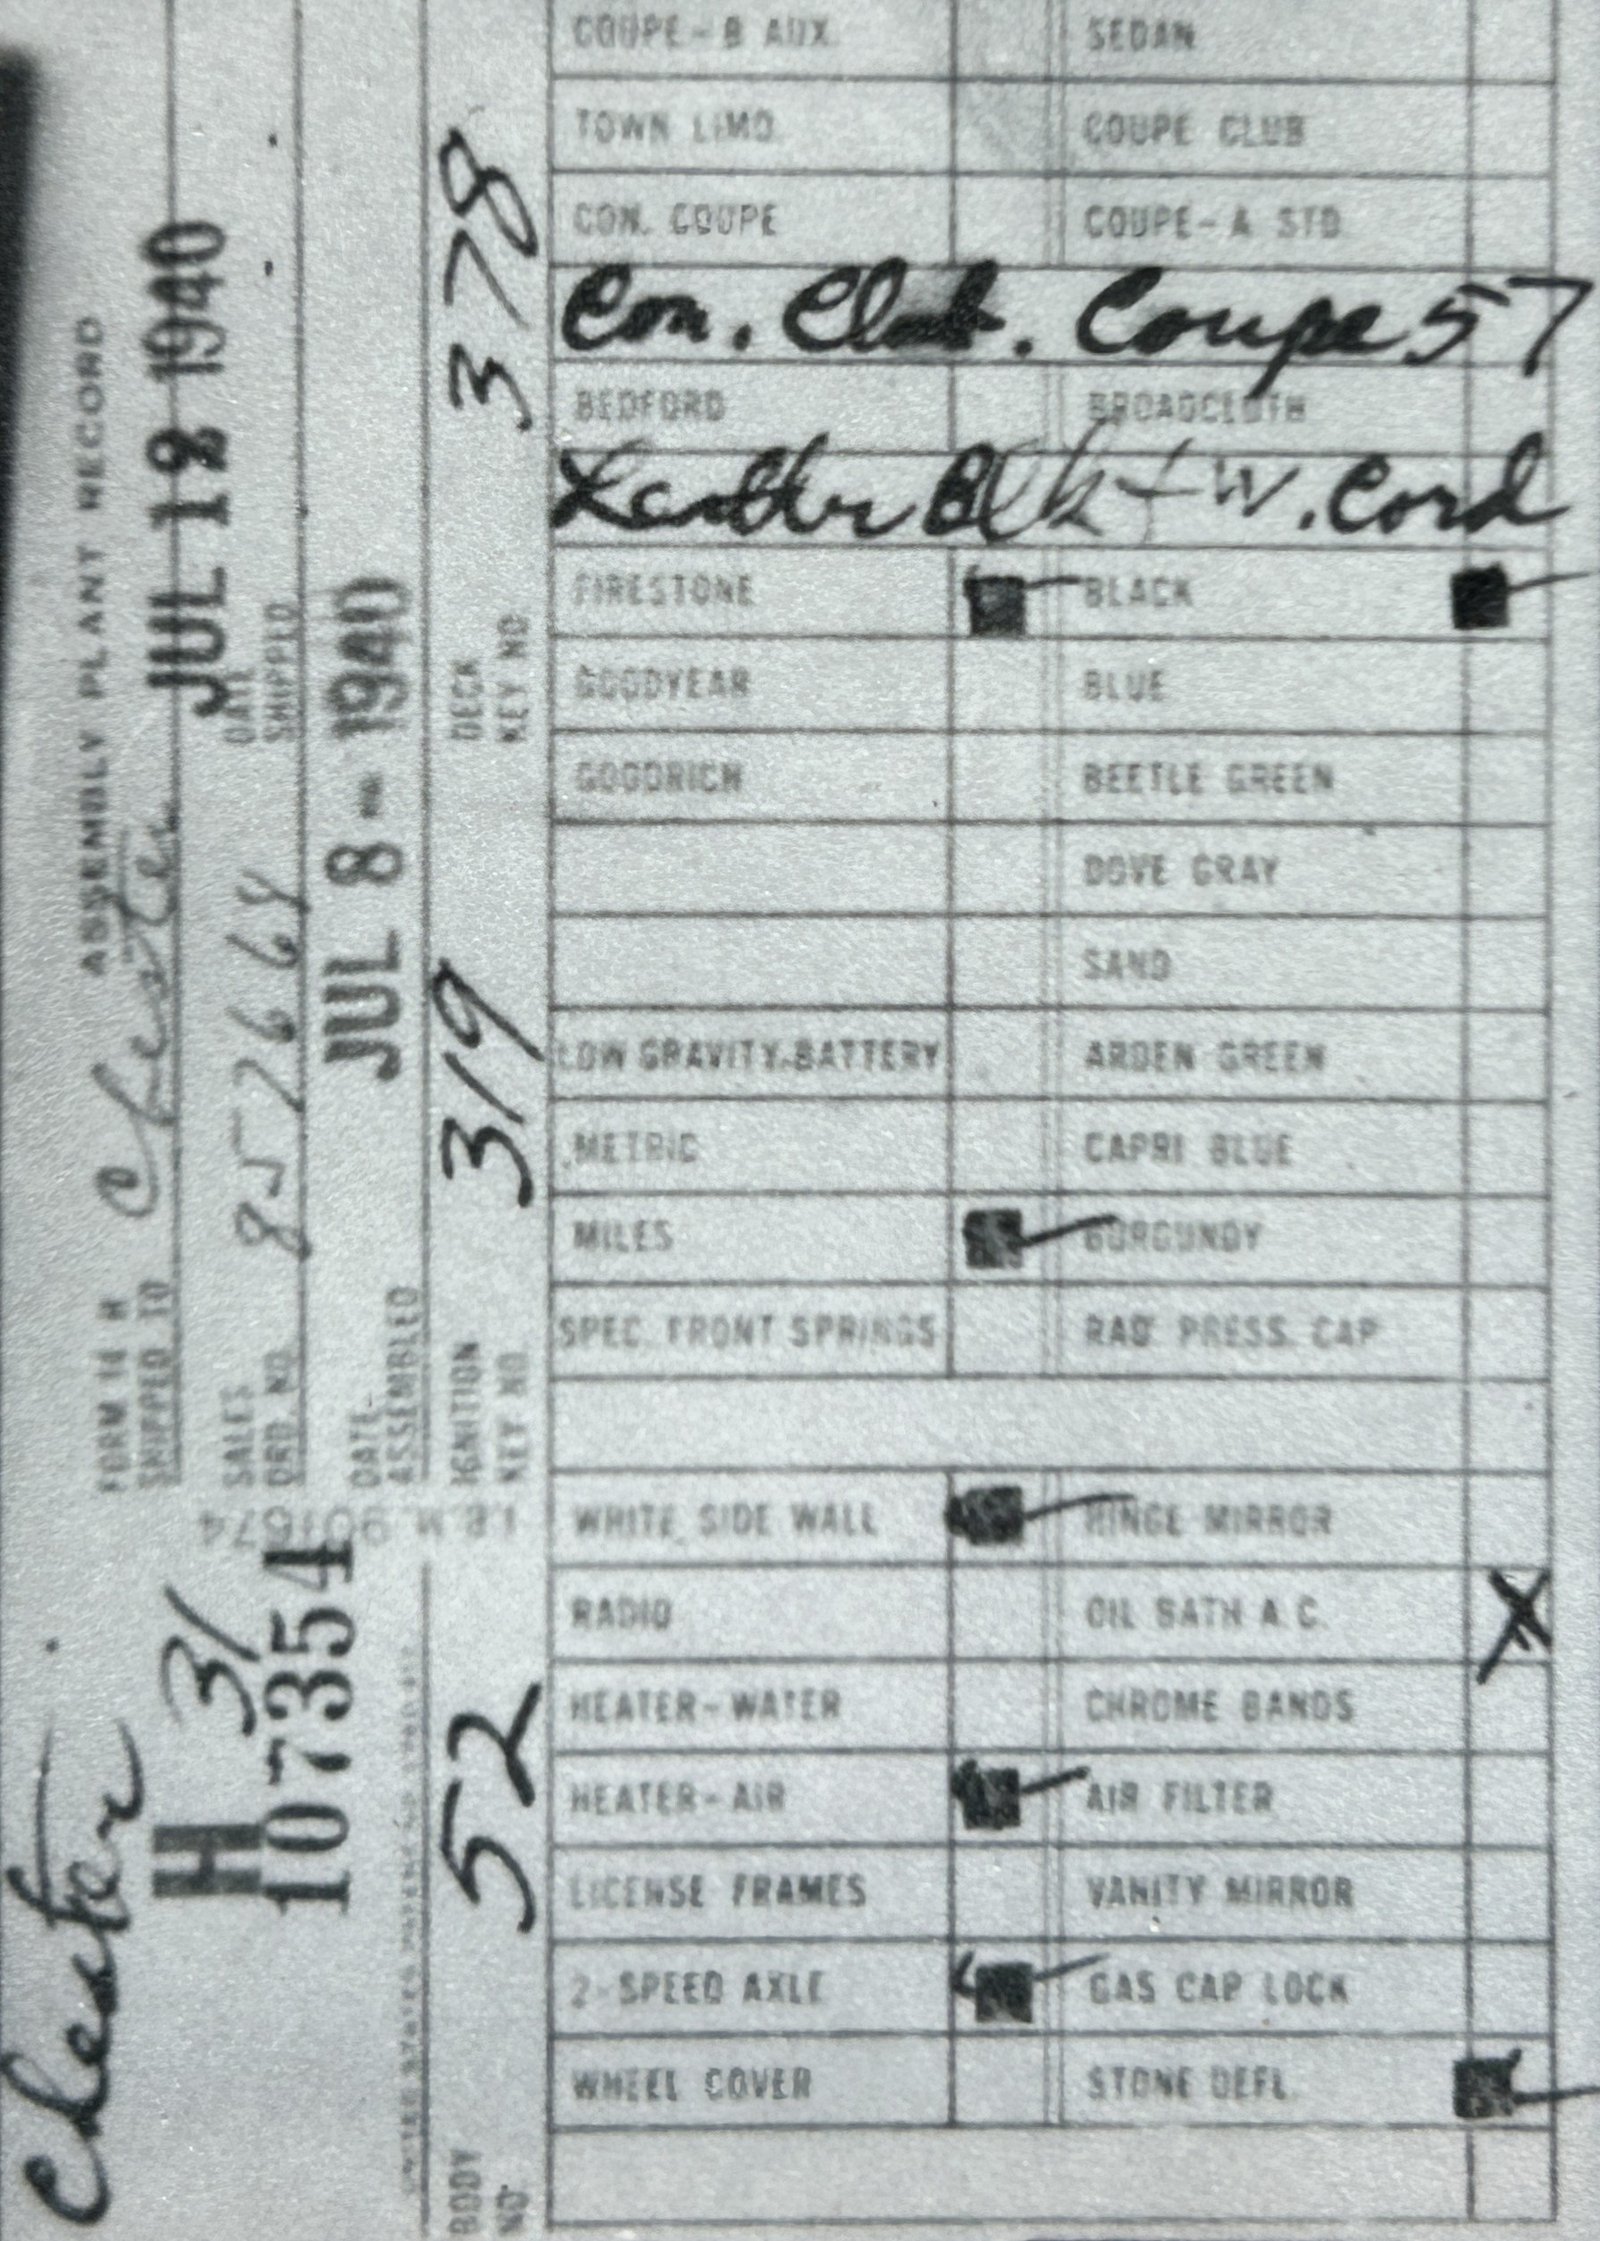 ASSEMBLY PLANT RECORD
FORM 14 H
SHIPPED TO Chester
JUL 12 1940
DATE SHIPPED
SALES ORD. NO. 857664
DATE ASSEMBLED JUL 8 - 1940
IGNITION KEY NO. 319
DECK KEY NO 378
Chester
H 31
107354
I.B.M 901674
BODY NO. 52
COUPE-B AUX. SEDAN
TOWN LIMO. COUPE CLUB
CON. COUPE COUPE-A STD.
Con. Club. Coupe 57
BEDFORD BROADCLOTH
Leather Blk + W. Cord
FIRESTONE BLACK
GOODYEAR BLUE
GOODRICH BEETLE GREEN
DOVE GRAY
SAND
LOW GRAVITY-BATTERY ARDEN GREEN
METRIC CAPRI BLUE
MILES BURGUNDY
SPEC. FRONT SPRINGS RAD. PRESS. CAP
WHITE SIDE WALL HINGE MIRROR
RADIO OIL BATH A.C. X
HEATER-WATER CHROME BANDS
HEATER-AIR AIR FILTER
LICENSE FRAMES VANITY MIRROR
2-SPEED AXLE GAS CAP LOCK
WHEEL COVER STONE DEFL.